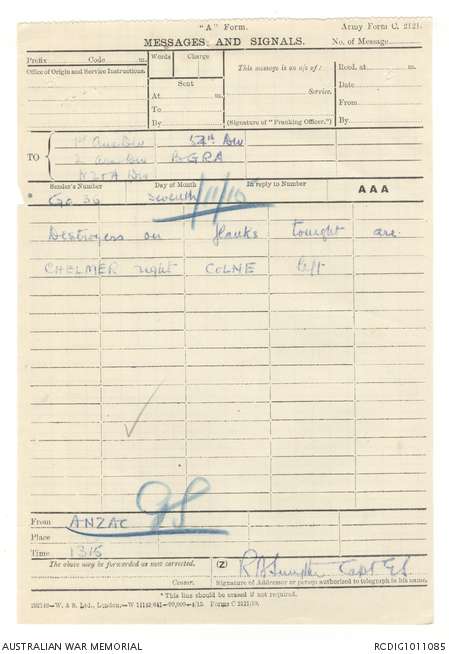 "A" Form. Army Form C. 2121.
MESSAGES AND SIGNALS. No. of Message
Prefix Code m. Words Charge
Office of Origin and Service Instructions.
Sent
At m.
To
By
This message is on a/c of:
Service.
(Signature of "Franking Officer.")
Recd. at m.
Date
From
By
TO
1st Aus Div 54th Div
2 Aus Div BGRA
NZ & A Div
Sender's Number Day of Month In reply to Number AAA
* Go 39 Seventh /11/15
Destroyers on flanks tonight are
CHELMER right COLNE left
GS
From ANZAC
Place
Time 1315
The above may be forwarded as now corrected. (Z)
Capt GS
Censor. Signature of Addressor or person authorised to telegraph in his name.
* This line should be erased if not required.
W. & S. Ltd., London.—W 11142/641 Forms C 2121/10.
AUSTRALIAN WAR MEMORIAL RCDIG1011085